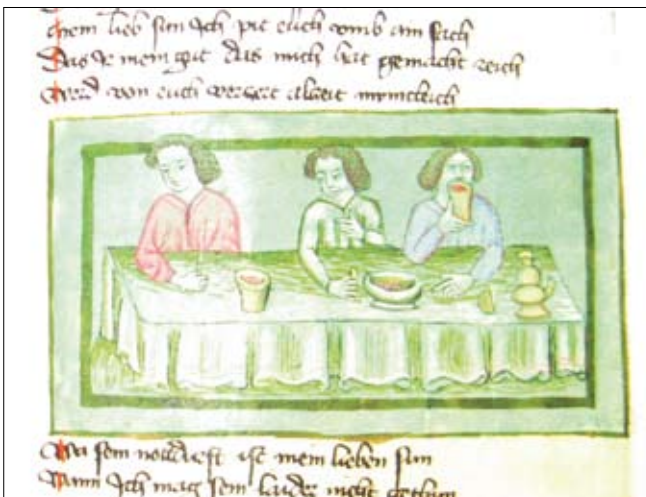 mein lieb sun Ich pit euch vomb ain sach
Das Ir mein gut das mich hat gemacht reich
Werd von euch verzert albeit
Wes sein notdurft ist mein lieben sun
Wann Ich mag sein laider nicht gethun